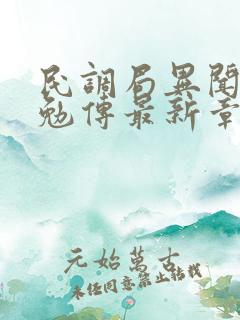 民調局異聞
勉傳最新章
元始萬古
未经同意禁止转载